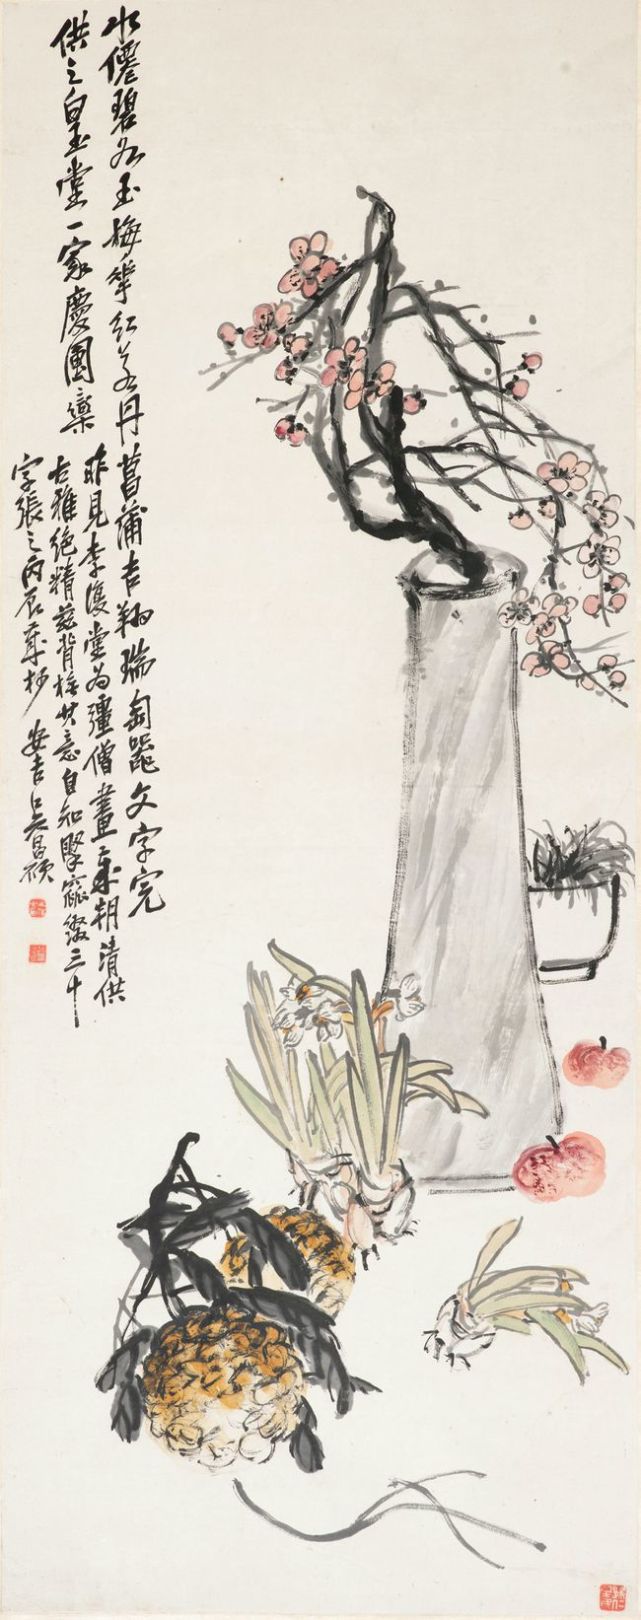 水僊碧如玉梅華红若丹菖蒲吉翔瑞匋器文字完
供之皇堂一家慶團欒
昨見李復堂為彊僧畫歲朝清供
古雅絕精茲背橅其意自知堅瘦綴三十
字張之丙辰歲杪安吉吳昌碩